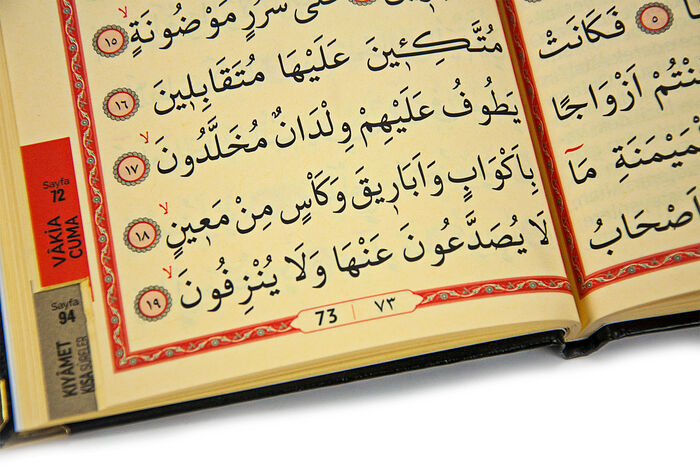 ٥ فَكَانَتْ
اَزْوَاجًا
مَٓا
اَصْحَابُ
سُرُرٍ مَوْضُونَةٍۙ ١٥
مُتَّكِـ۪ٔينَ عَلَيْهَا مُتَقَابِل۪ينَ ١٦
يَطُوفُ عَلَيْهِمْ وِلْدَانٌ مُخَلَّدُونَۙ ١٧
بِاَكْوَابٍ وَاَبَار۪يقَ وَكَأْسٍ مِنْ مَع۪ينٍۙ ١٨
لَا يُصَدَّعُونَ عَنْهَا وَلَا يُنْزِفُونَۙ ١٩
73 | ٧٣
Sayfa
72
VÂKİA
CUMA
Sayfa
94
KIYÂMET
KISA SÛRELER